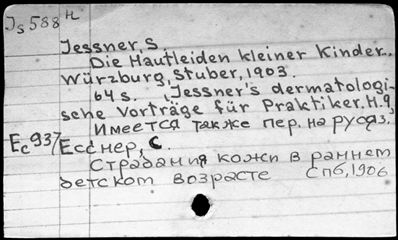 Js 588 H
Jessner, S.
Die Hautleiden kleiner Kinder.
Würzburg, Stuber, 1903.
64 s. Jessner's dermatologi-
sche Vorträge für Praktiker. H.9
Имеется также пер. на русяз.
Ес 937/ Есснер, С.
Страдания кожи в раннем
детском возрасте спб, 1906